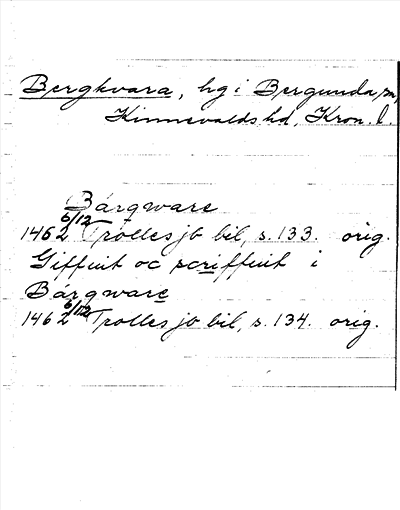 Bergkvara, hg i Bergunda sn,
Kinnevalds hd, Kron. l.
Bárgware
1462 6/12 Trolles jb bil, s. 133. orig.
Giffuit oc scriffuit i
Bárgware
1462 6/12 Trolles jb bil, s. 134. orig.